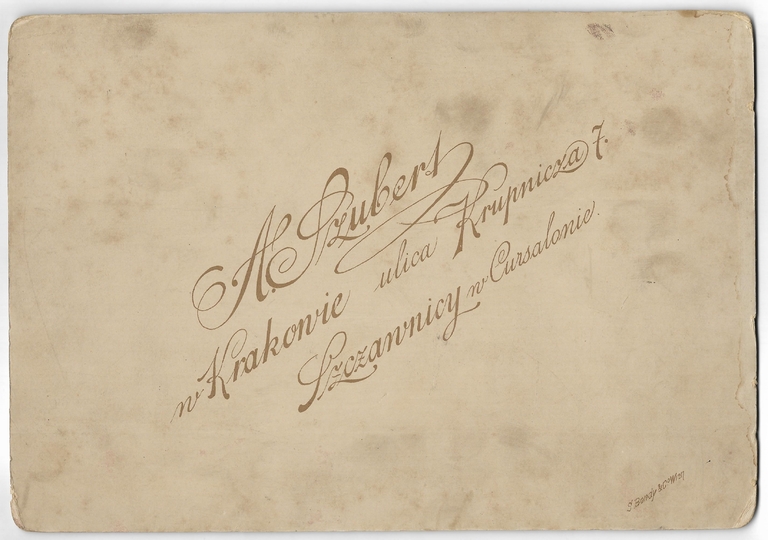 A. Szubert
w Krakowie ulica Krupnicza 7.
Szczawnicy w Cursalonie.